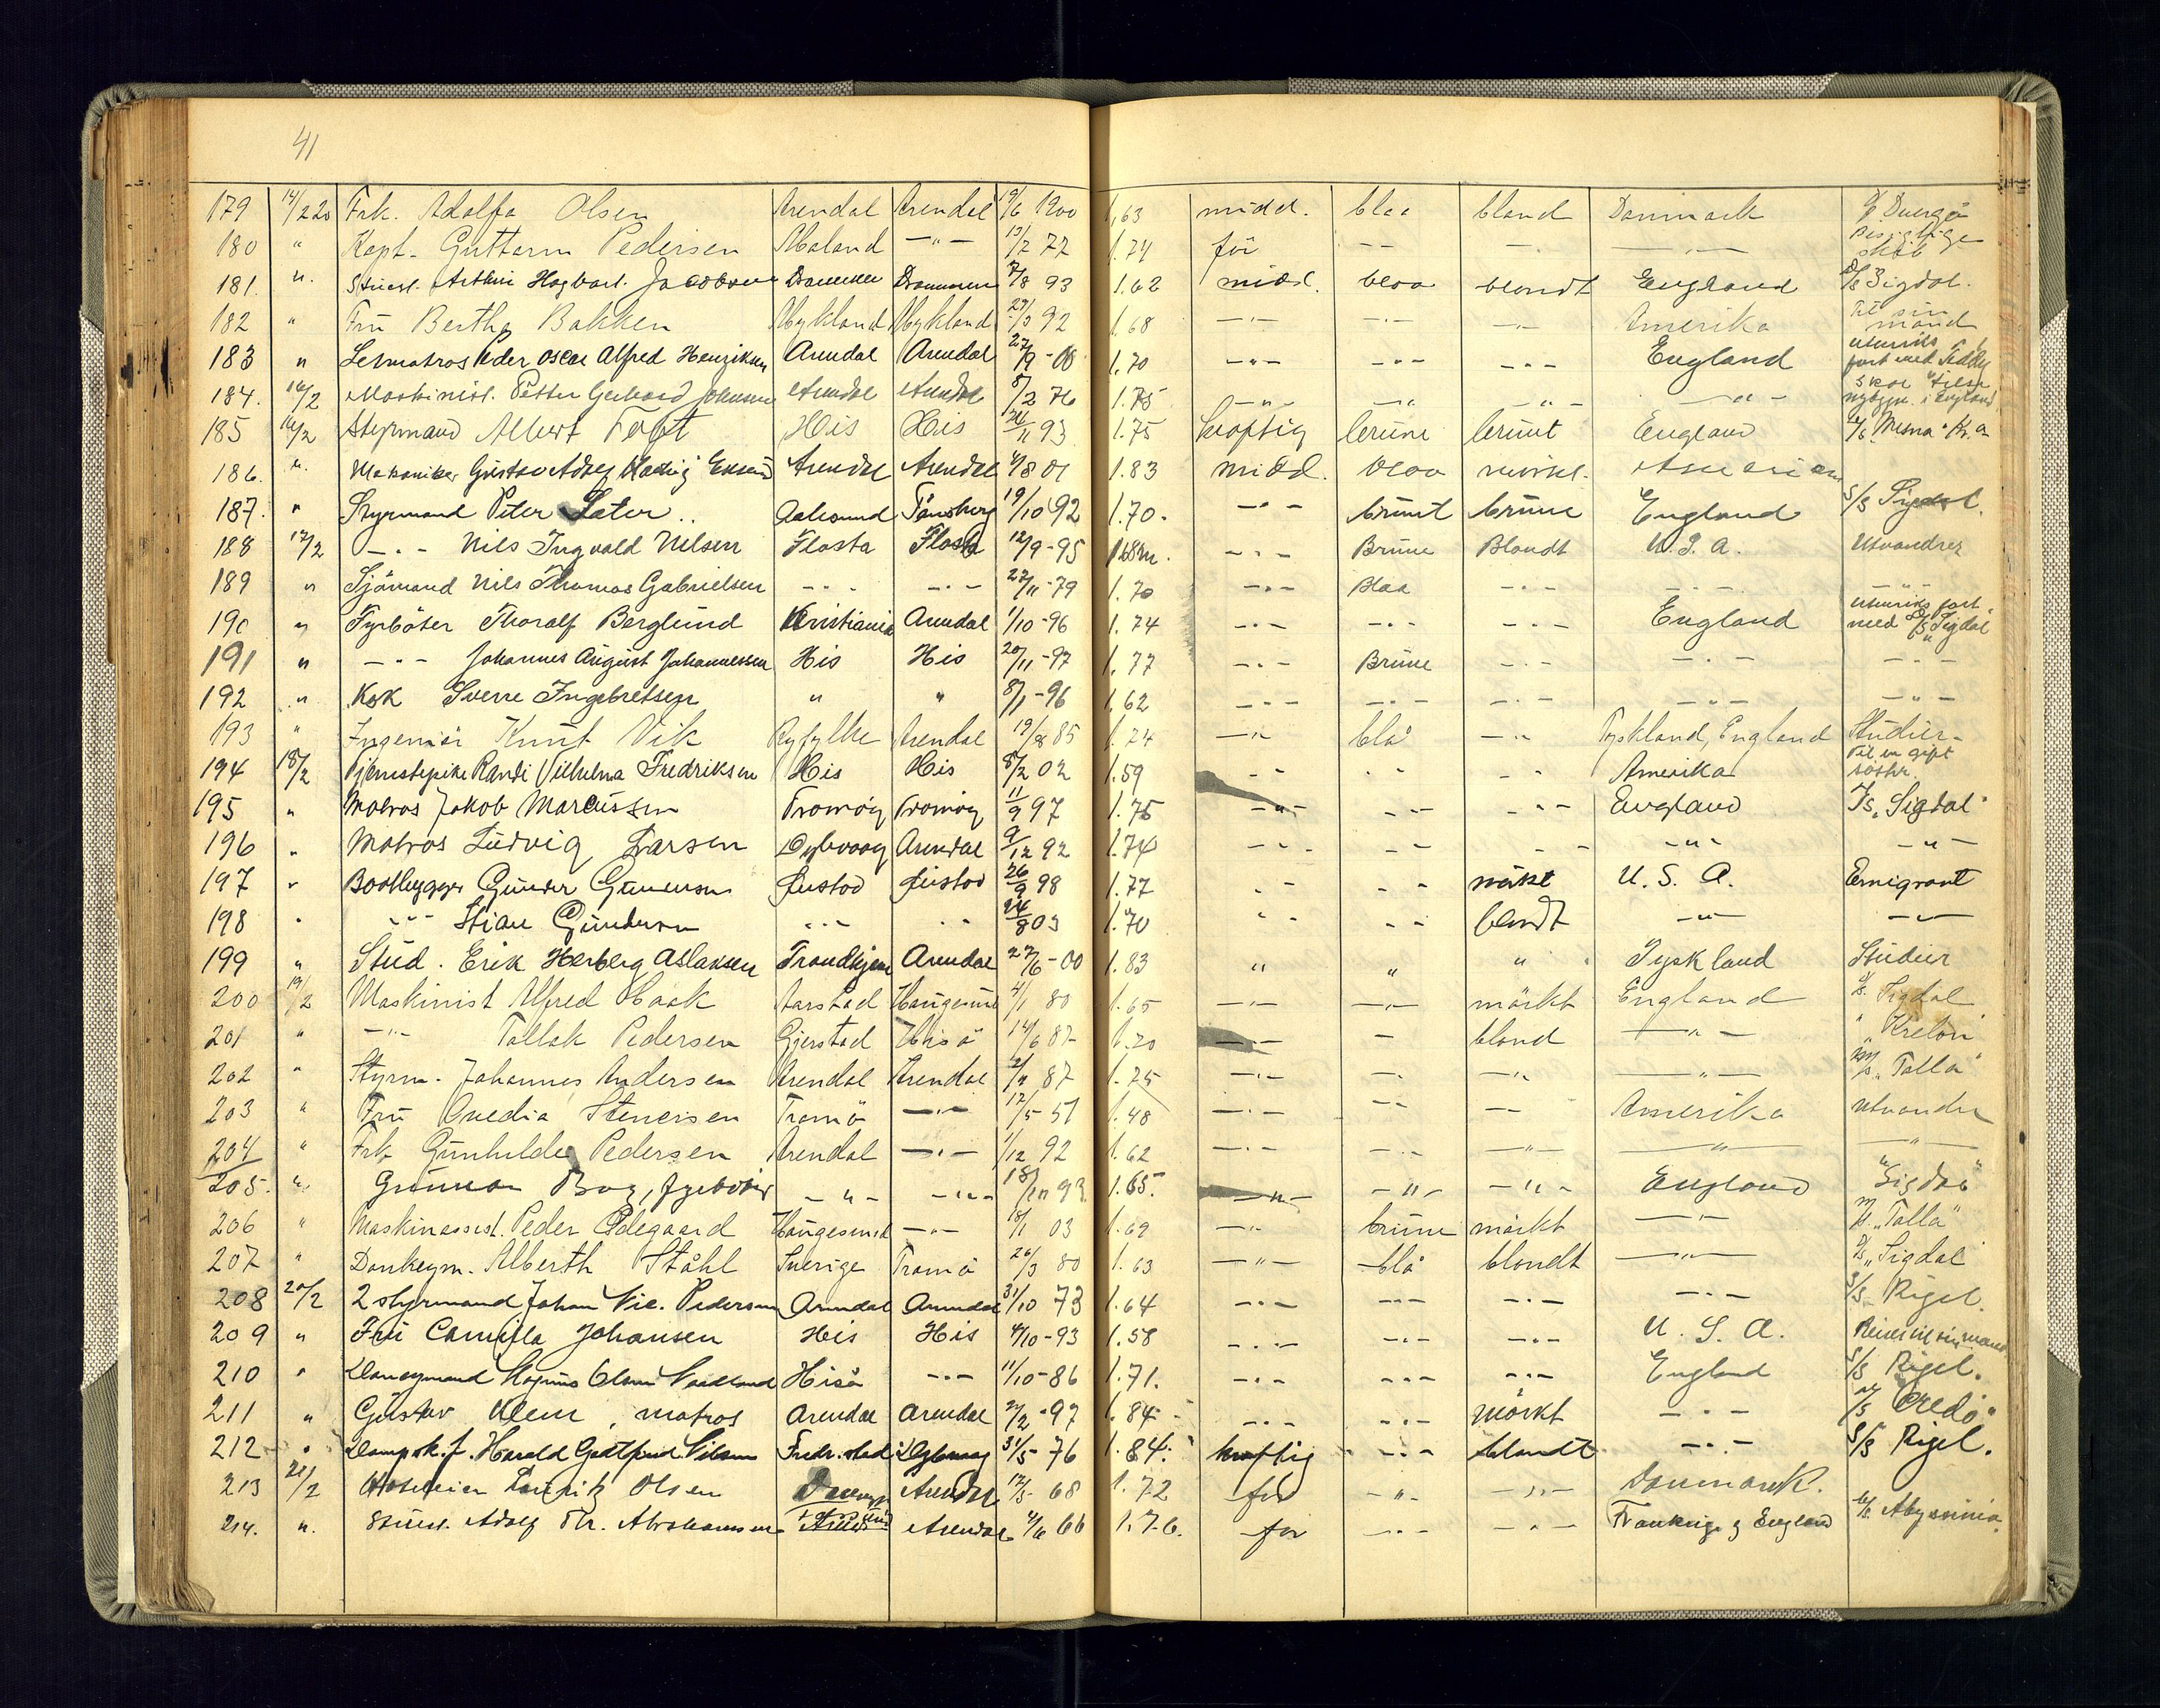 41
179 14/2 20 Frk. Adolfa Olsen Arendal Arendal 19/6 1900 1,63 midd. blaa blond Danmark
180 " Kapt. Guttorm Pedersen —"— 13/2 72 1.74 før — — —
181. ". Stuert. Hagbart Jacobsen Drammen Drammen 7/8 93 1.62 midd. blaa blondt England D/S Sigdal.
182 " Frü Bertha Bakken Mykland Mykland 92 1.68 —"— —"— —"— Amerika Til sin mand
183 " Letmatros Peder Oscar Alfred Henriksen Arendal Arendal 27/9 - 08 1.70 —"— —"— —"— England
184. 16/2 Maskinist. Petter Gerhard Johnsen Arendal Arendal 8/2 76 1.75 —"— —"— —"— —"— nybygn. i England
185 16/2 Styrmand Albert His His 93 1.75 kraftig brüne brünt England
186. ". Mekaniker Güstav Adolf Arendal Arendal 4/8 01 1.83 midd. blaa mørkt.
187. " Styrmand Peter Sæter .. Aalesund Tönsberg 19/10 92 1.70. —"— brünt brüne England S/S Sigdal.
188 17/2 —"— Nils Ingvald Nilsen Flosta Flosta 12/9 - 95 —"— Brüne Blondt U.S.A. Utvandrer
189 " Sjömand Nils Thomas Gabrielsen —"— —"— 27/11 - 79 1.70 —"— Blaa —"— —"— —"—
190 " Fyrböter Thoralf Berglünd Kristiania Arendal 1/10 - 96 1.74 —"— —"— —"— England utenriks fart med D/S Sigdal
191 " —"— Johannes Aügüst Johannessen His His 20/11 - 97 1.77 —"— Brüne —"— —"— —"—
192 " Kok Sverre Ingebretsen " " 8/1 - 96 1.62 —"— —"— —"— —"— —"—
193 " Ingeniør Knüt Vik Ryfylke Arendal 19/8 85 1.74 —"— blå —"— Tyskland, England Stüdier
194 18/2 Tjenestepike Randi Vilhelma Fredriksen His His 8/2 02 1.59 " " " Amerika Til en gift søster.
195 " Matros Jakob Marcüssen Tromøy Tromøy 11/9 97 1.75 —"— —"— —"— England "Sigdal"
196 " Matros Lüdvig Larsen Dybvaag Arendal 9/12 92 1.74 —"— —"— —"— —"— —"—
197 " Baatbygger Günder Günersen 26/9 98 1.77 —"— —"— mørkt U.S.A. Emigrant
198 " —"— Stian Gündersen —"— —"— 24/8 03 1.70 —"— —"— blondt —"— —"—
199 " Stüd. Erik Herberg Aslaksen Trondhjem Arendal 27/6 - 00 1.83 " " " Tyskland Stüdier
200 19/2 Maskinist Alfred Haak Aarstad Haugesund 4/1 80 1.65 —"— —"— mörkt England S/S. Sigdal
201 " —"— Tallak Pedersen Gjerstad Hisö 14/6 87 1.70 —"— — blond —"—
202 " Styrm. Johannes Andersen Arendal Arendal 87 1.75 —"— —"— —"— —"— "Talla"
203 " Frü Ovedia Stenersen Tromö —"— 17/5 - 51 1.48 —"— —"— —"— Amerika utvandre
204 " Frk Günhilde Pedersen Arendal —"— 1/12 92 1.62 —"— —"— —"— —"— —"—
205. " Günnar fyrböter —"— —"— 1.65. —"— —"— —"— England "Sigdal"
206 " Maskinassist. Peder Ødegaard Haugesund —"— 18/1 03 1.69 —"— brüne mörkt —"— "Talla"
207 " Donkeym. Alberth Ståhl Sverige Tromö 26/3 80 1.63 —"— blå blondt —"— "Sigdal"
208 20/2 2 styrmand Johan Nic. Pedersen Arendal Arendal 31/10 73 1.64 —"— —"— —"— —"— S/S Rigel.
209 " Frü Camilla Johansen His His 4/10 - 93 1.58 —"— —"— —"— U.S.A. Reiser til sin mand
210 " Magnüs Olsen Hisö —"— 11/10 - 86 1.71. —"— —"— —"— England S/S Rigel.
211 " Güstav Klem, matros Arendal Arendal 2/2 - 97 1.84 —"— —"— mörkt —"— "Credo"
212 " Harald Gottfried Nilsen Fredr.stad Dybvaag 31/5 - 76 1.84. kraftig —"— blondt —"— S/S Rigel.
213 21/2 Laüritz Olsen Arendal 12/5 68 1.72 før —"— —"— Danmark.
214. ". Stüert. Adolf Th. Abrahamsen Arendal 66 1.76. før —"— —"— Frankrige og England Abyssinia.